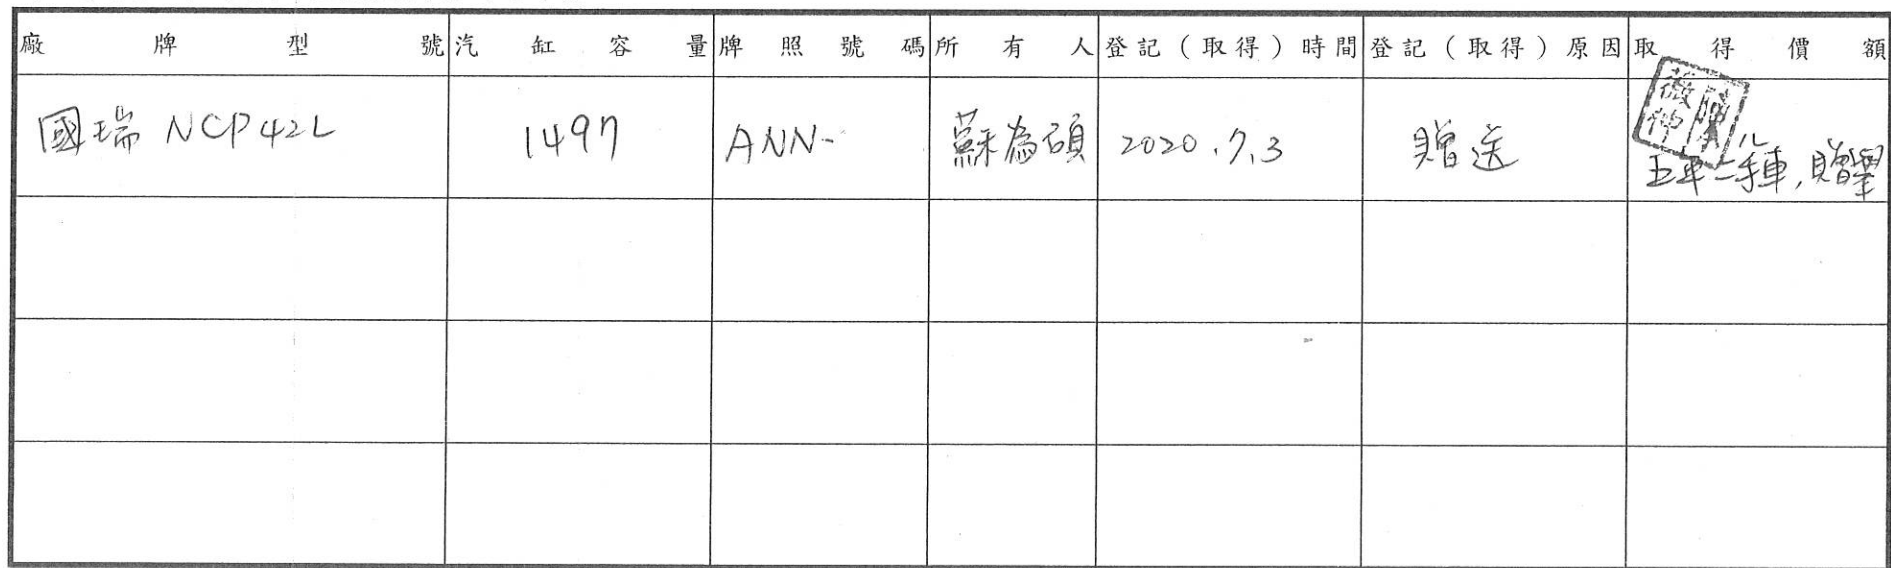 廠牌型號 汽缸容量 牌照號碼 所有人 登記（取得）時間 登記（取得）原因 取得價額
國瑞 NCP42L 1497 ANN- 蘇為碩 2020.7.3 贈送
五年二手車,贈與